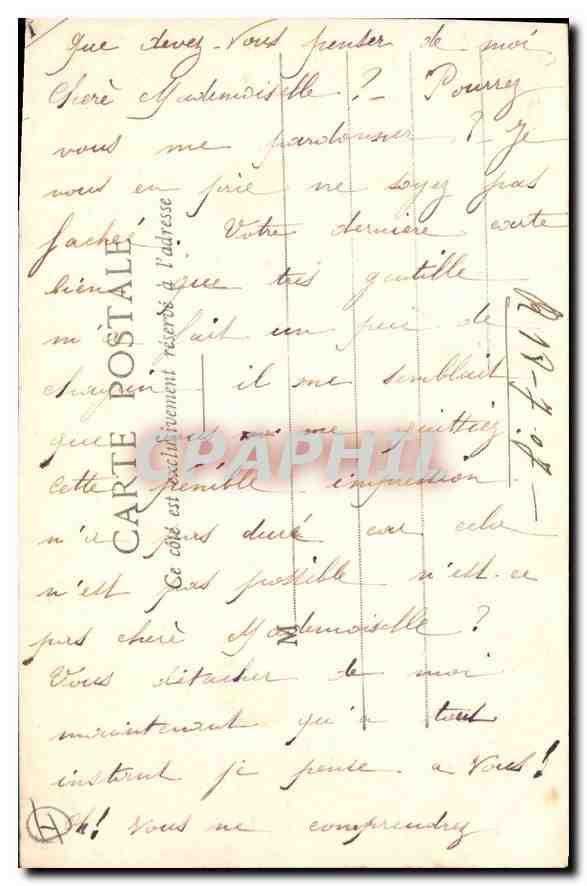 Que devez-Vous penser de moi
Chère Mademoiselle ? — Pourrez
vous me pardonner ? Je
vous en prie ne soyez pas
fachée. Votre dernière carte
bien que très gentille
m'a fait un peu de
chagrin. il me semblait
que vous me quittiez
cette pénible impression
n'a pas duré car cela
n'est pas possible n'est-ce
pas chère Mademoiselle ?
Vous détacher de moi
maintenant qu'à tout
instant je pense à Vous !
Oh ! Vous ne comprendrez
CARTE POSTALE
Ce côté est exclusivement réservé à l'adresse
M
CPAPHIL